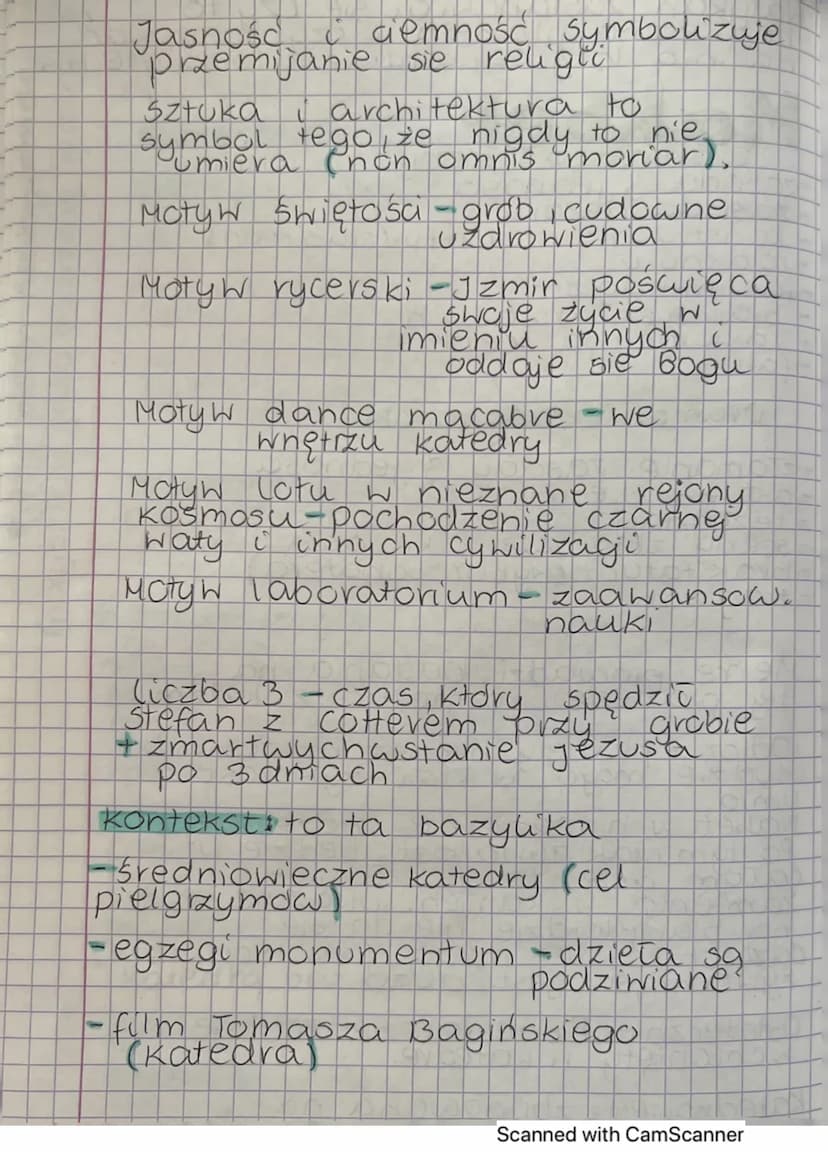 Jasność i ciemność symbolizuje
przemijanie sie religii
sztuka i architektura to
symbol tego, że nigdy to nie
umiera (non omnis moriar).
Motyw świętości - grób, cudowne
uzdrowienia
Motyw rycerski - Izmir poświęca
swoje życie w
imieniu innych i
oddaje sie Bogu
Motyw dance macabre - we
wnętrzu katedry
Motyw lotu w nieznane rejony
kosmosu - pochodzenie czarnej
waty i innych cywilizacji
Motyw laboratorium - zaawansow.
nauki
liczba 3 - czas, który spędził
Stefan z Cotterem przy grobie
+ zmartwychwstanie Jezusa
po 3 dniach
kontekst: to ta bazylika
- średniowieczne katedry (cel
pielgrzymów)
- egzegi monumentum - dzieła są
podziwiane
- film Tomasza Bagińskiego
(Katedra)
Scanned with CamScanner